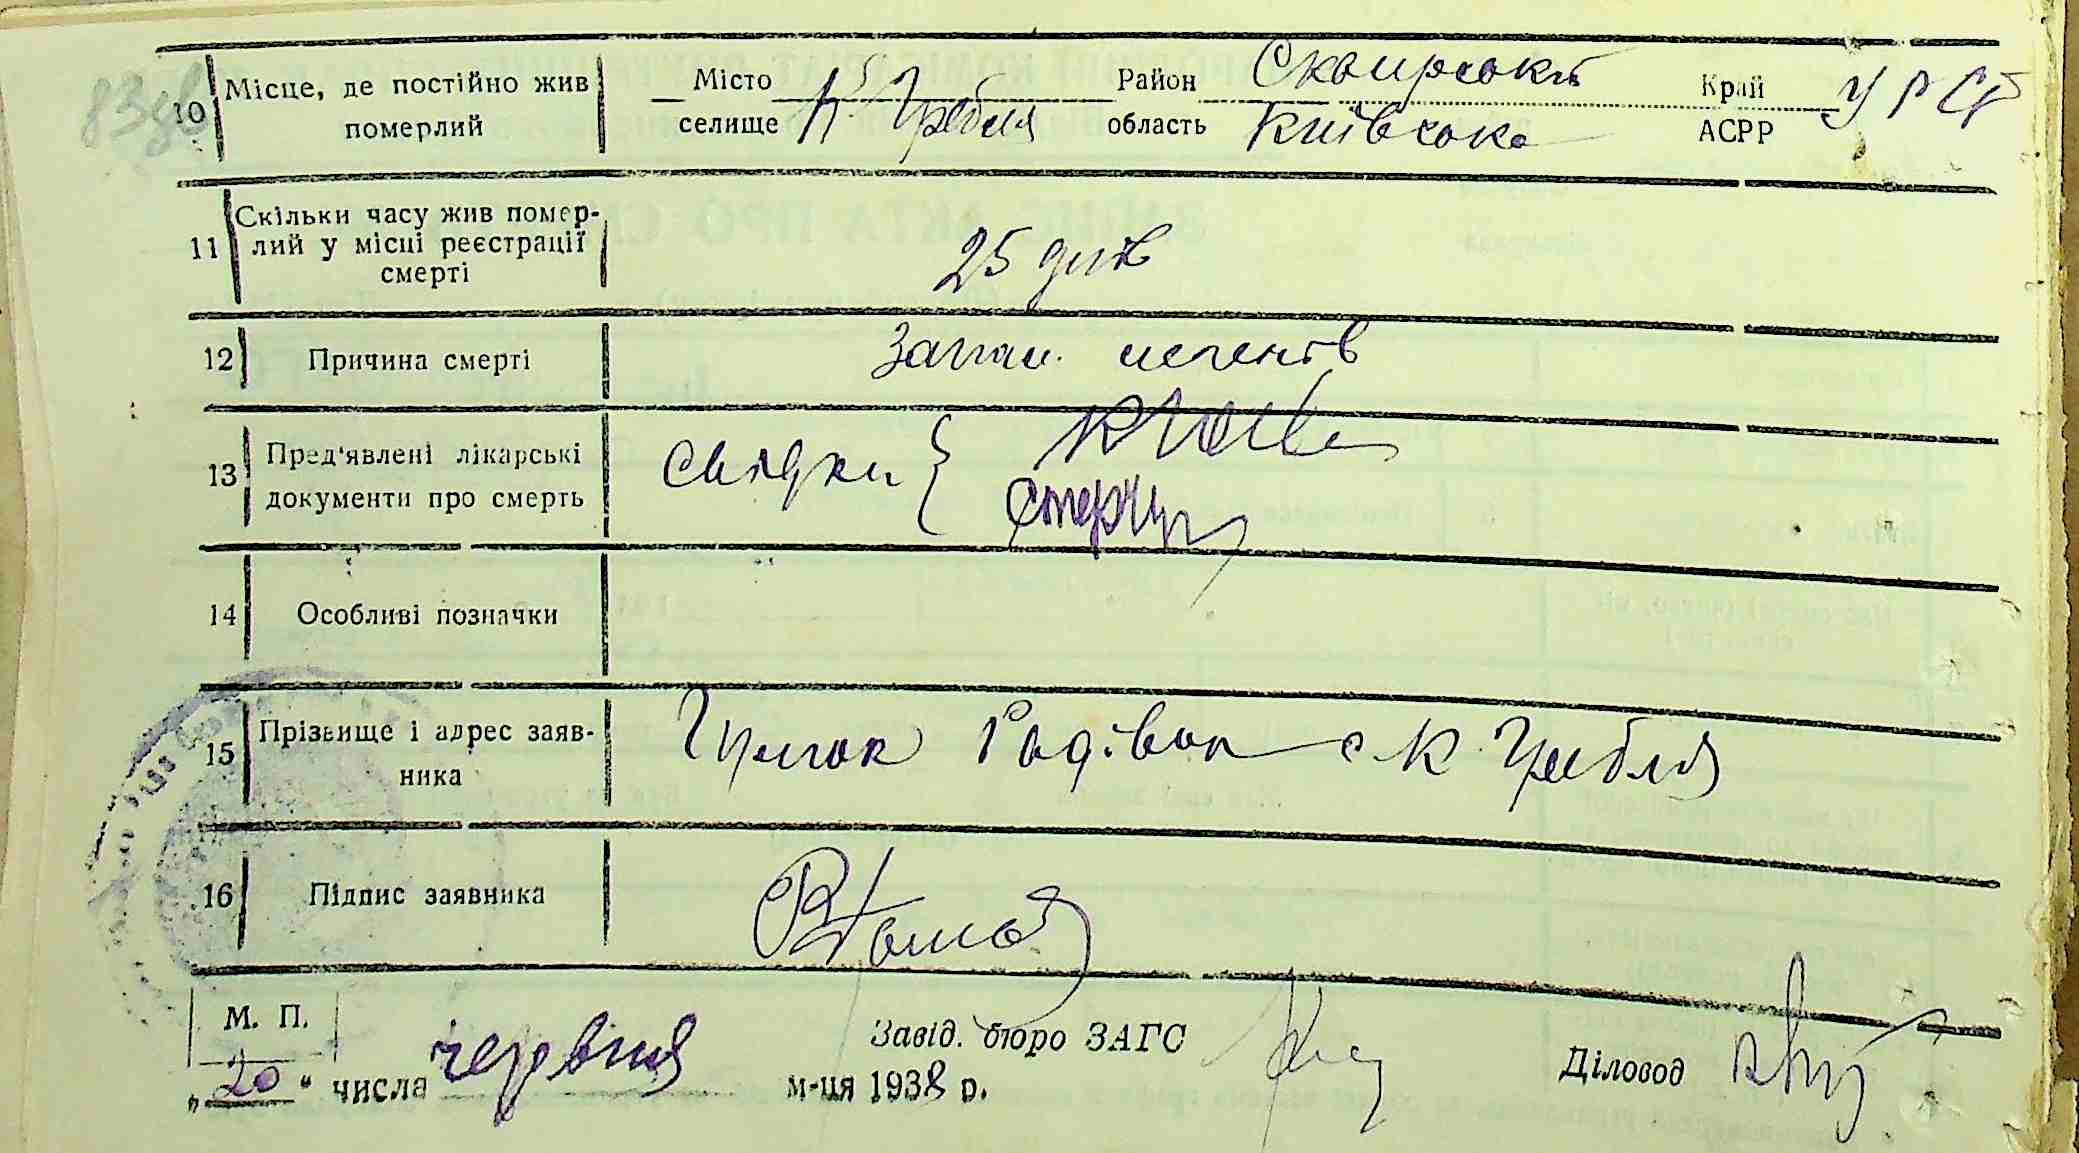 10 Місце, де постійно жив померлий
Місто селище К. Гребля
Район Сквирський
область Київська
Край АСРР УРСР
11 Скільки часу жив помер-
лий у місці реєстрації
смерті
25 днів
12 Причина смерті
Запал. легенів
13 Пред'явлені лікарські
документи про смерть
свідки
14 Особливі позначки
15 Прізвище і адрес заяв-
ника
Родіон с К. Гребля
16 Підпис заявника
М. П.
"20" числа червня м-ця 1938 р.
Завід. бюро ЗАГС
Діловод